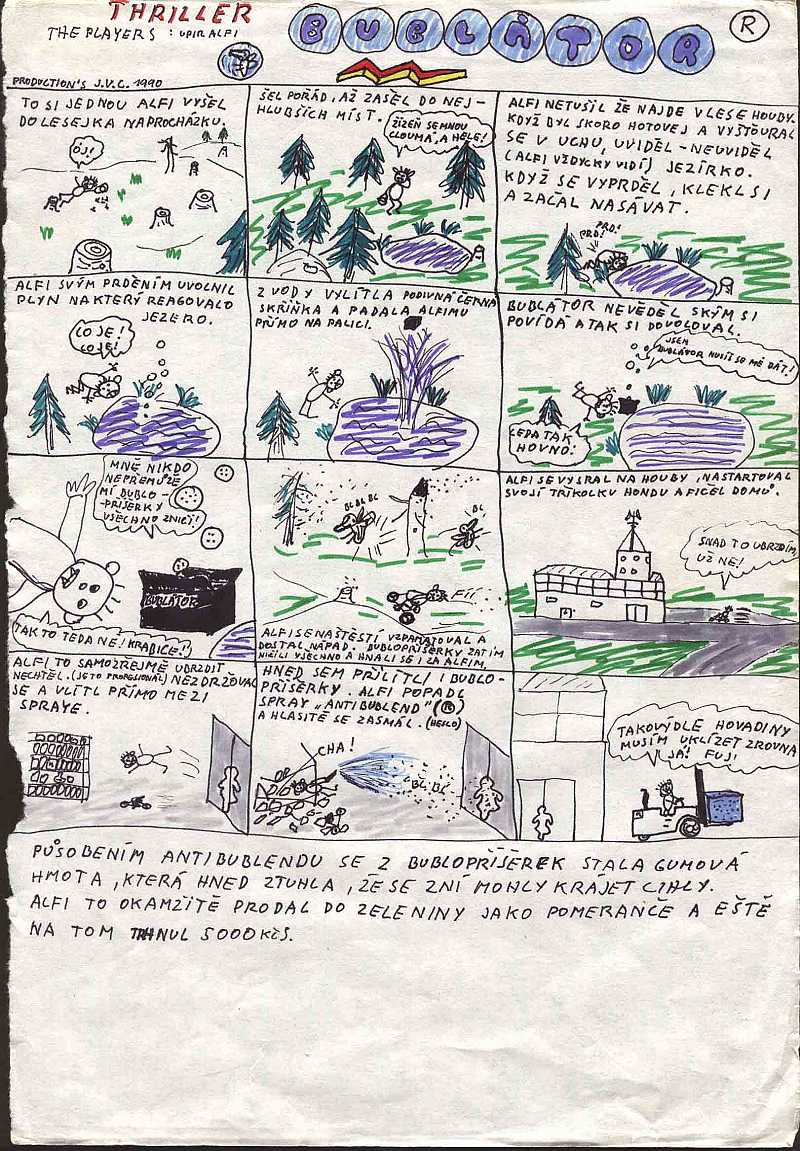 THRILLER
THE PLAYERS : UPIR ALFI
BUBLÁTOR
R
PRODUCTION'S J.V.C. 1990
TO SI JEDNOU ALFI VYŠEL
DO LESEJKA NAPROCHÁZKU.
ÓJ!
ŠEL POŘÁD, AŽ ZAŠEL DO NEJ-
HLUBŠÍCH MÍST.
ŽÍZEŇ SEMNOU
CLOUMÁ, A HELE!
ALFI NETUŠIL ŽE NAJDE V LESE HOUBY.
KDYŽ BYL SKORO HOTOVEJ A VYŠŤOURAL
SE V UCHU, UVIDĚL-NEUVIDĚL
(ALFI VŽDYCKY VIDÍ) JEZÍRKO.
KDYŽ SE VYPRDĚL, KLEKL SI
A ZAČAL NASÁVAT.
PRD!
PRD!
ALFI SVÝM PRDĚNÍM UVOLNIL
PLYN NA KTERÝ REAGOVALO
JEZERO.
CO JE!
CO JE!
Z VODY VYLÍTLA PODIVNÁ ČERNÁ
SKŘÍŇKA A PADALA ALFIMU
PŘÍMO NA PALICI.
BUBLÁTOR NEVĚDĚL SKÝM SI
POVÍDÁ A TAK SI DOVOLOVAL.
JSEM
BUBLÁTOR MUSÍŠ SE MĚ DÁT!
LEDA TAK
HOVNO!
MNĚ NIKDO
NEPŘEMŮŽE
MÍ BUBLO-
PŘÍŠERKY
VŠECHNO ZNIČÍ!
BUBLÁTOR
TAK TO TEDA NE! KRABICE!
BL BL BL
BL
ALFI SE NAŠTĚSTÍ VZPAMATOVAL A
DOSTAL NÁPAD. BUBLOPŘÍŠERKY ZATÍM
NIČILI VŠECHNO A HNALI SE I ZA ALFIM.
ALFI SE VYSRAL NA HOUBY, NASTARTOVAL
SVOJÍ TŘÍKOLKU HONDU A FIČEL DOMŮ.
SNAD TO UBRZDÍM,
UŽ NE!
ALFI TO SAMOZŘEJMĚ UBRZDIT
NECHTĚL. (JE TO PROFESIONÁL) NEZDRŽOVAL
SE A VLÍTL PŘÍMO MEZI
SPRAYE.
HNED SEM PŘILÍTLI I BUBLO-
PŘÍŠERKY. ALFI POPADL
SPRAY „ANTIBUBLEND" (R)
A HLASITĚ SE ZASMÁL. (HESLO)
CHA!
BL. BL.
TAKOVÝDLE HOVADINY
MUSÍM UKLÍZET ZROVNA
JÁ! FUJ!
PŮSOBENÍM ANTIBUBLENDU SE Z BUBLOPŘÍŠEREK STALA GUMOVÁ
HMOTA, KTERÁ HNED ZTUHLA, ŽE SE ZNÍ MOHLY KRÁJET CIHLY.
ALFI TO OKAMŽITĚ PRODAL DO ZELENINY JAKO POMERANČE A EŠTĚ
NA TOM TRHNUL 5000 KČS.